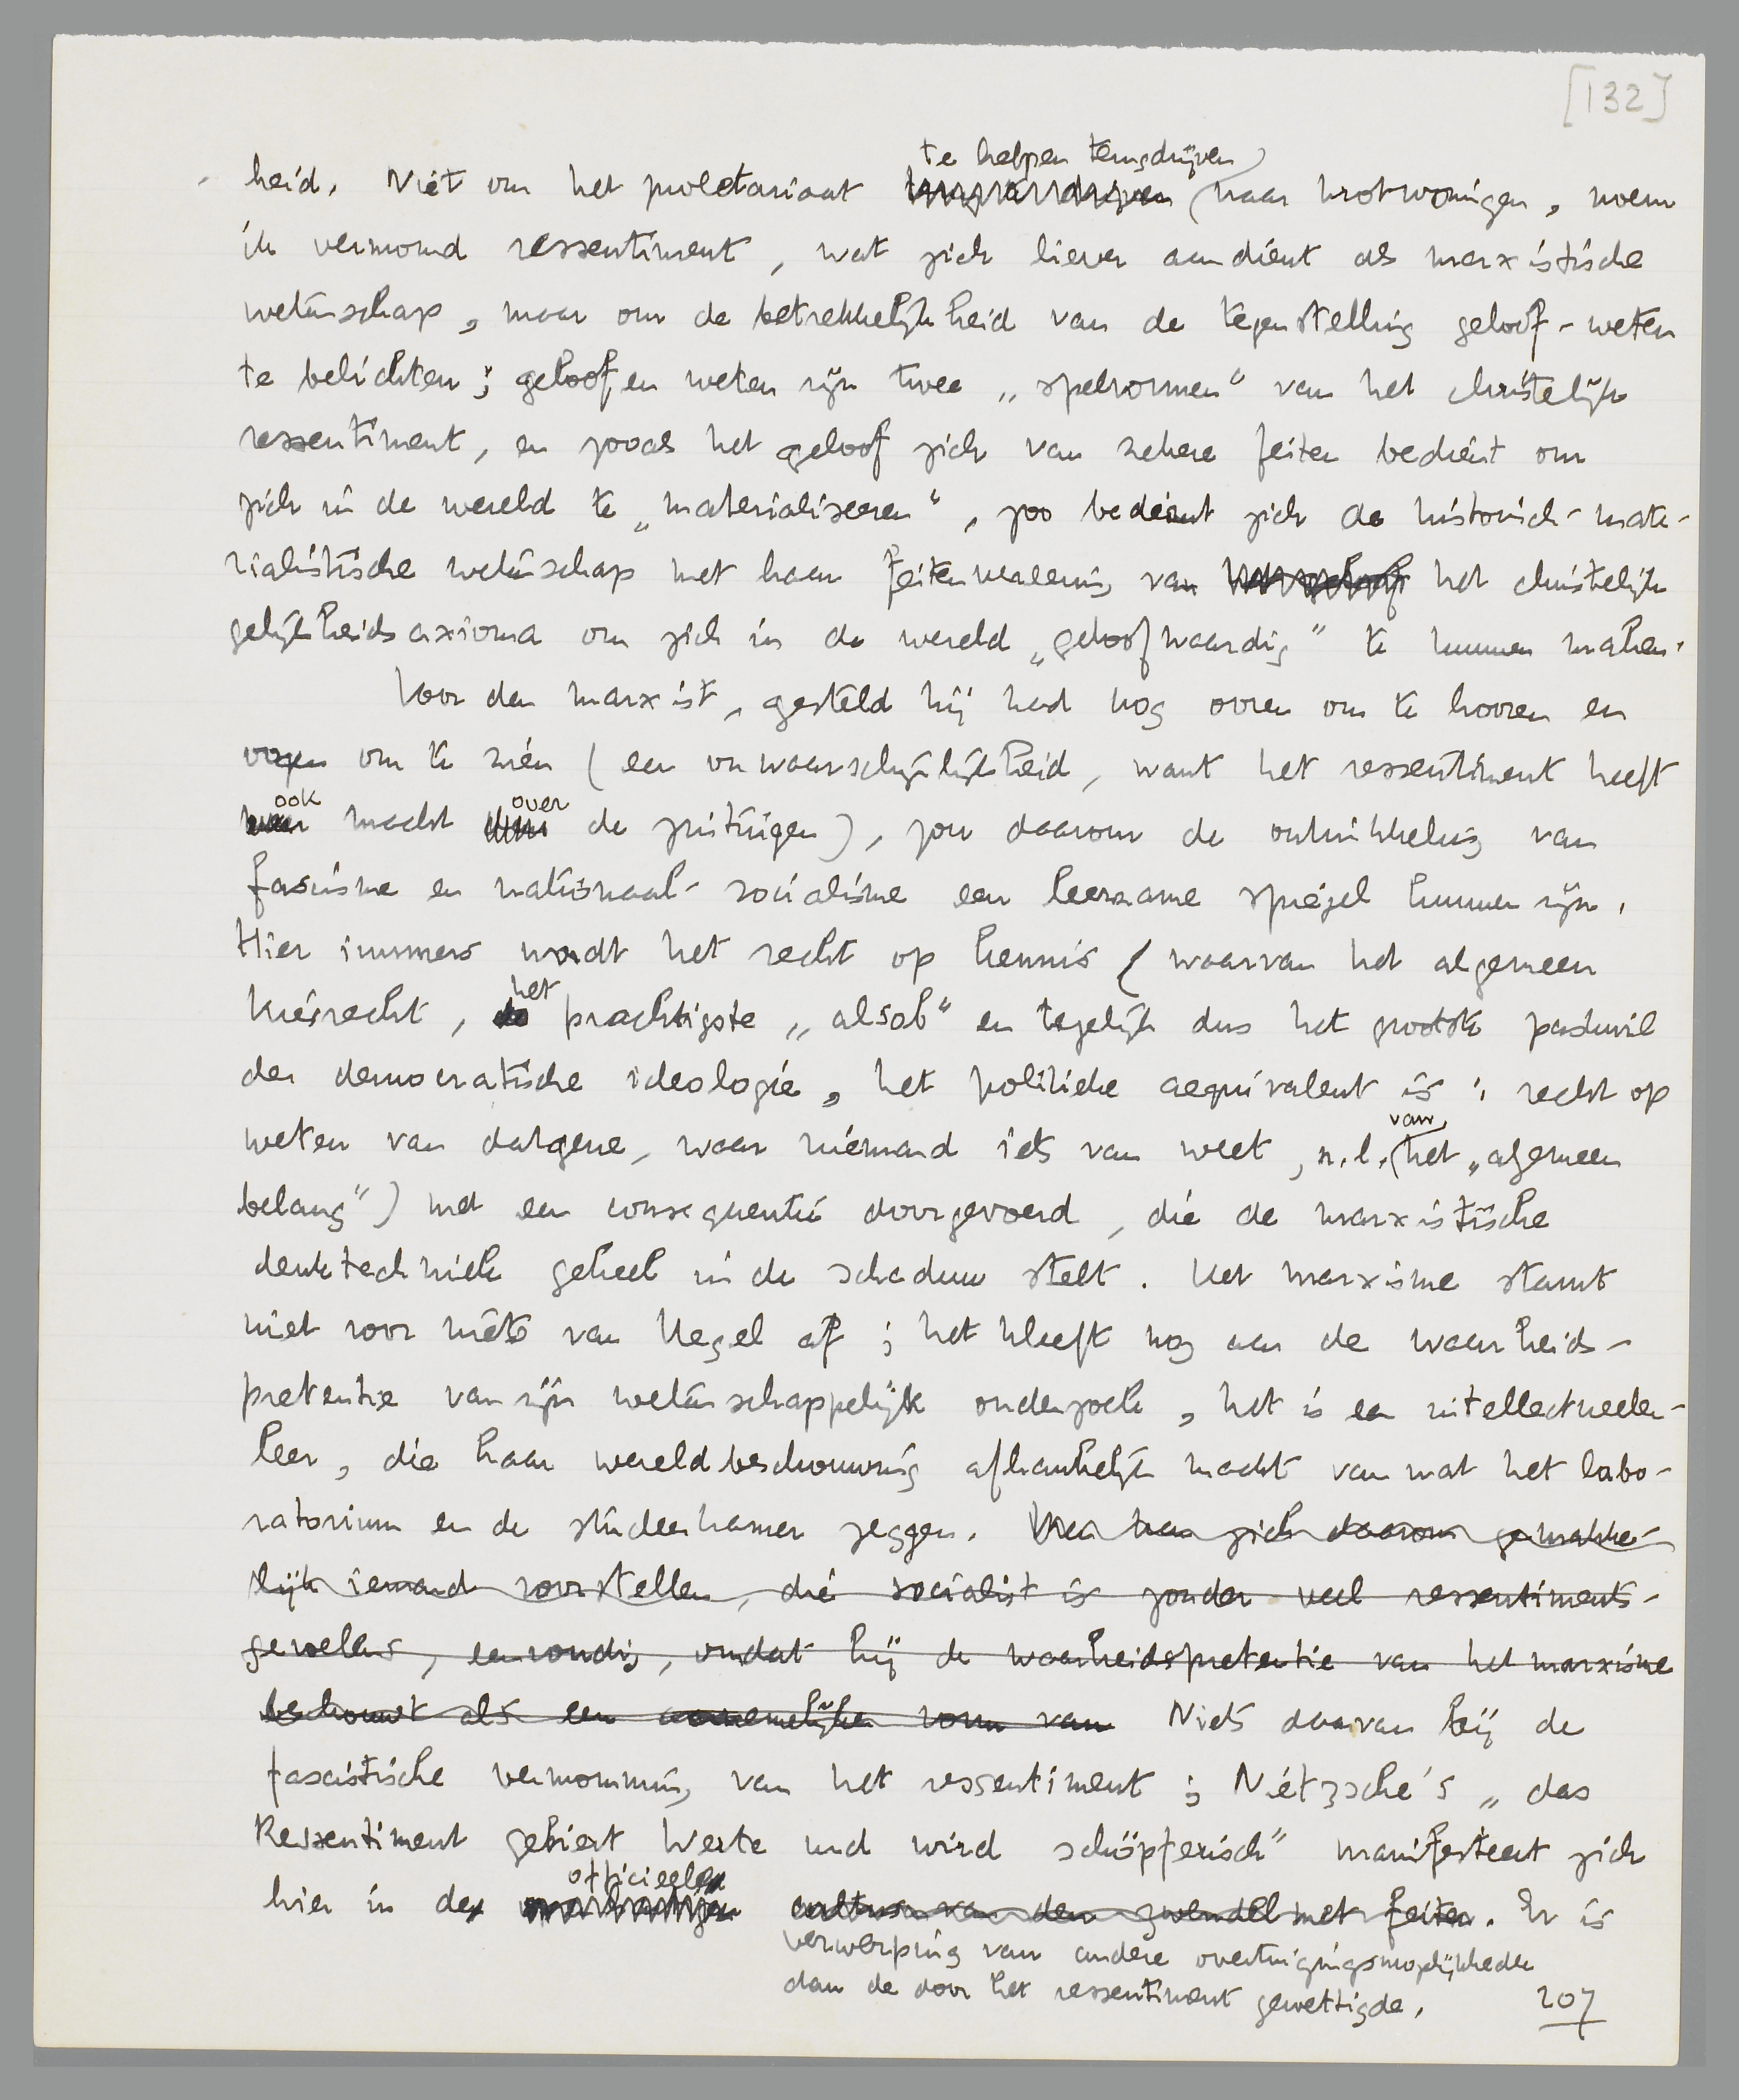 [132]
te helpen terugdrijven
heid. Niet om het proletariaat (naar krotwoningen, noem
ik vermomd ressentiment, wat zich liever aandient als marxistische
wetenschap, maar om de betrekkelijkheid van de tegenstelling geloof-weten
te belichten; geloof en weten zijn twee „spelvormen” van het christelijk
ressentiment, en zooals het geloof zich van zekere feiten bedient om
zich in de wereld te „materialiseeren”, zoo bedient zich de historisch-mate-
rialistische wetenschap met haar feitenverleening van het christelijk
gelijkheidsaxioma om zich in de wereld „geloofwaardig” te kunnen maken.
Voor den marxist, gesteld hij had nog ooren om te hooren en
oogen om te zien (een onwaarschijnlijkheid, want het ressentiment heeft
ook macht over de zintuigen), zou daarom de ontwikkeling van
fascisme en nationaal-socialisme een leerzame spiegel kunnen zijn.
Hier immers wordt het recht op kennis (waarvan het algemeen
kiesrecht, het prachtigste „alsob” en tegelijk dus het grootste paskwil
der democratische ideologie, het politieke aequivalent is: recht op
weten van datgene, waar niemand iets van weet, n.l. van het „algemeen
belang”) met een consequentie doorgevoerd, die de marxistische
denktechniek geheel in de schaduw stelt. Het marxisme stamt
niet voor niets van Hegel af; het kleeft nog aan de waarheids-
pretentie van zijn wetenschappelijk onderzoek, het is een intellectueelen-
leer, die haar wereldbeschouwing afhankelijk maakt van wat het labo-
ratorium en de studeerkamer zeggen. Men kan zich daarom gemakke-
lijk iemand voorstellen, die socialist is zonder veel ressentiments-
gevoelens, eenvoudig, omdat hij de waarheidspretentie van het marxisme
beschouwt als een aannemelijken vorm van Niets daarvan bij de
fascistische vermomming van het ressentiment; Nietzsche's „das
Ressentiment gebiert Werte und wird schöpferisch” manifesteert zich
hier in de officieele cultus van den zwendel met feiten. Er is
verwerping van andere overtuigingsmogelijkheden
dan de door het ressentiment gewettigde.
207